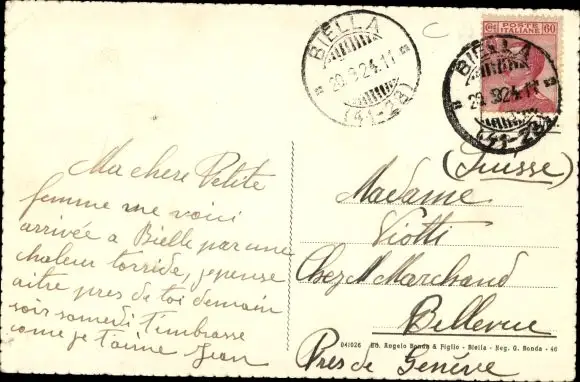 BIELLA
29.8.24.17
(41-28)
POSTE ITALIANE
Cmi 60
BIELLA
29.8.24.17
(41-28)
(Suisse)
Ma chere Petite
femme me voici
arrivée a Bielle par une
chaleur torride, je pense
aitre pres de toi demain
soir samedi t'embrasse
come je t'aime Jean
Madame
Viotti
Chez M Marchand
Bellevue
Pres de Genéve
041026 Ed. Angelo Bonda & Figlio - Biella - Neg. G. Bonda - 46